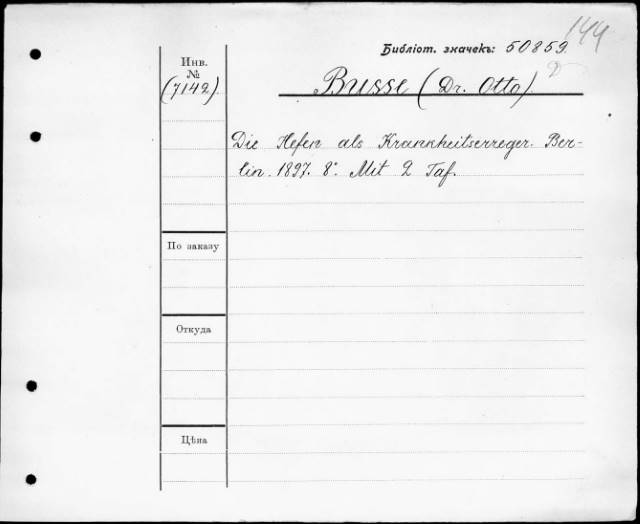 144
Библіот. значекъ: 50859
Инв.
№
(7142)
Busse (Dr. Otto)
Die Hefen als Krankheitserreger. Ber-
lin. 1897. 8° Mit 2 Taf.
По заказу
Откуда
Цѣна